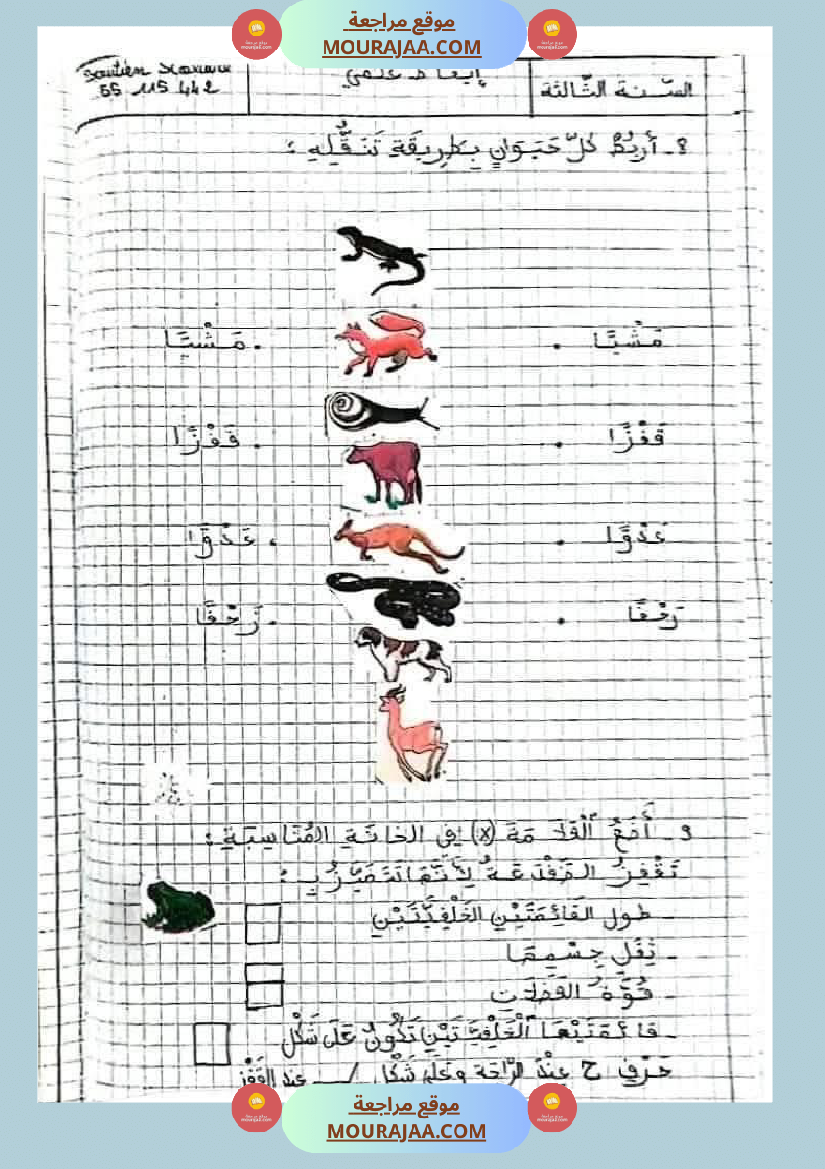 موقع مراجعة
MOURAJAA.COM
السّنة الثّالثة
إيقاظ علمي
55 115 442
8 - أَرْبُطُ كُلَّ حَيَوَانٍ بِطَرِيقَةِ تَنَقُّلِهِ :
مَشْيًا . . مَشْيًا
قَفْزًا . . قَفْزًا
عَدْوًا . . عَدْوًا
زَحْفًا . . زَحْفًا
9 - أَضَعُ الْعَلَامَةَ (x) فِي الخانَةِ المُنَاسِبَةِ :
تَقْفِزُ الضِّفْدَعَةُ لِأَنَّهَا تَتَمَيَّزُ بِ :
- طول القَائِمَتَيْنِ الخَلْفِيَّتَيْنِ
- ثِقَلِ جِسْمِهَا
- قُوَّةُ العَضَلَات
- قَائِمَتَيْهَا الْخَلْفِيَّتَيْنِ تَكُونُ عَلَى شَكْلِ
حَرْفِ ح عِنْدَ الرَّاحَةِ وَعَلَى شَكْلِ / عند القَفْز
موقع مراجعة
MOURAJAA.COM